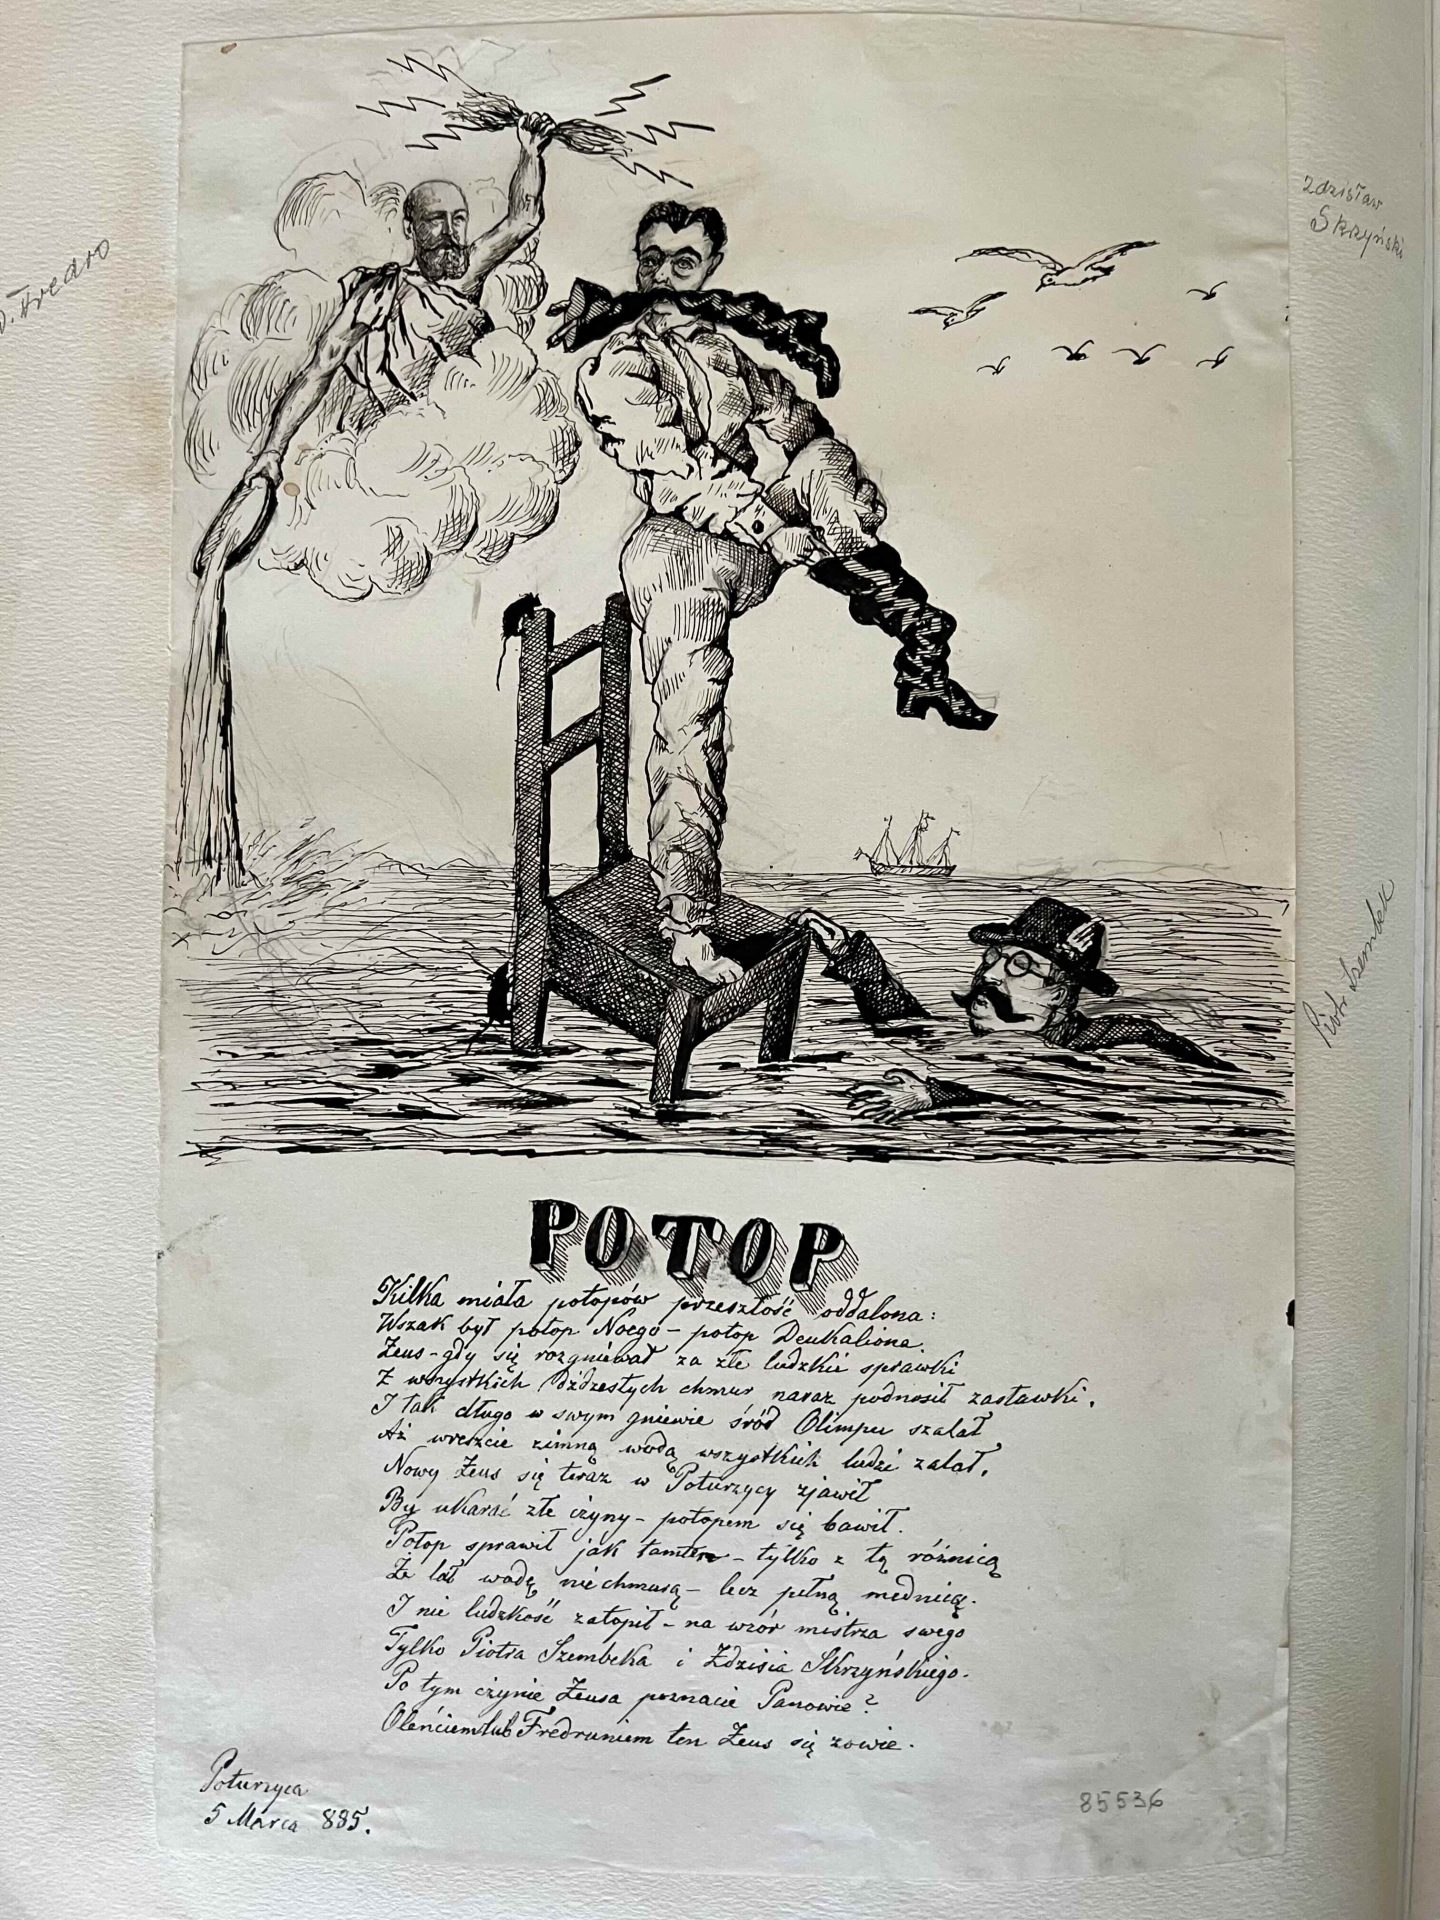 Fredro
Zdzisław
Skrzyński
Piotr Szembek
POTOP
Kilka miała potopów przeszłość oddalona:
Wszak był potop Noego – potop Deukaliona.
Zeus – gdy się rozgniewał za złe ludzkie sprawki
Z wszystkich dżdżestych chmur naraz podnosił zastawki.
I tak długo w swym gniewie śród Olimpu szalał
Aż wreszcie zimną wodą wszystkich ludzi zalał.
Nowy Zeus się teraz w Poturzycy zjawił
By ukarać złe czyny – potopem się bawił.
Potop sprawił jak tamten – tylko z tą różnicą
Że lał wodę nie chmurą – lecz pełną mednicą.
I nie ludzkość zatopił – na wzór mistrza swego
Tylko Piotra Szembeka i Zdzisia Skrzyńskiego.
Po tym czynie Zeusa poznacie Panowie?
Oleńciem lub Fredruniem ten Zeus się zowie.
Poturzyca
5 Marca 885.
85536